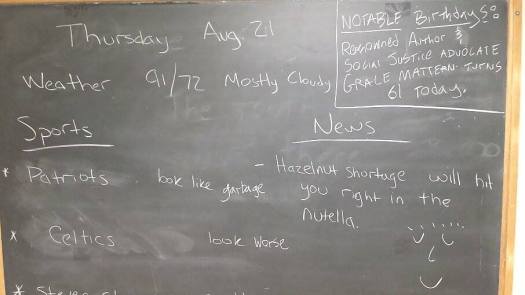 Thursday Aug 21
Weather 91/72 Mostly Cloudy
NOTABLE Birthdays:
Renowned Author &
SOCIAL JUSTICE ADVOCATE
MATTERN TURNS
61 TODAY.
Sports
* Patriots look like garbage
* Celtics look worse
*
News
- Hazelnut shortage will hit
you right in the
nutella.